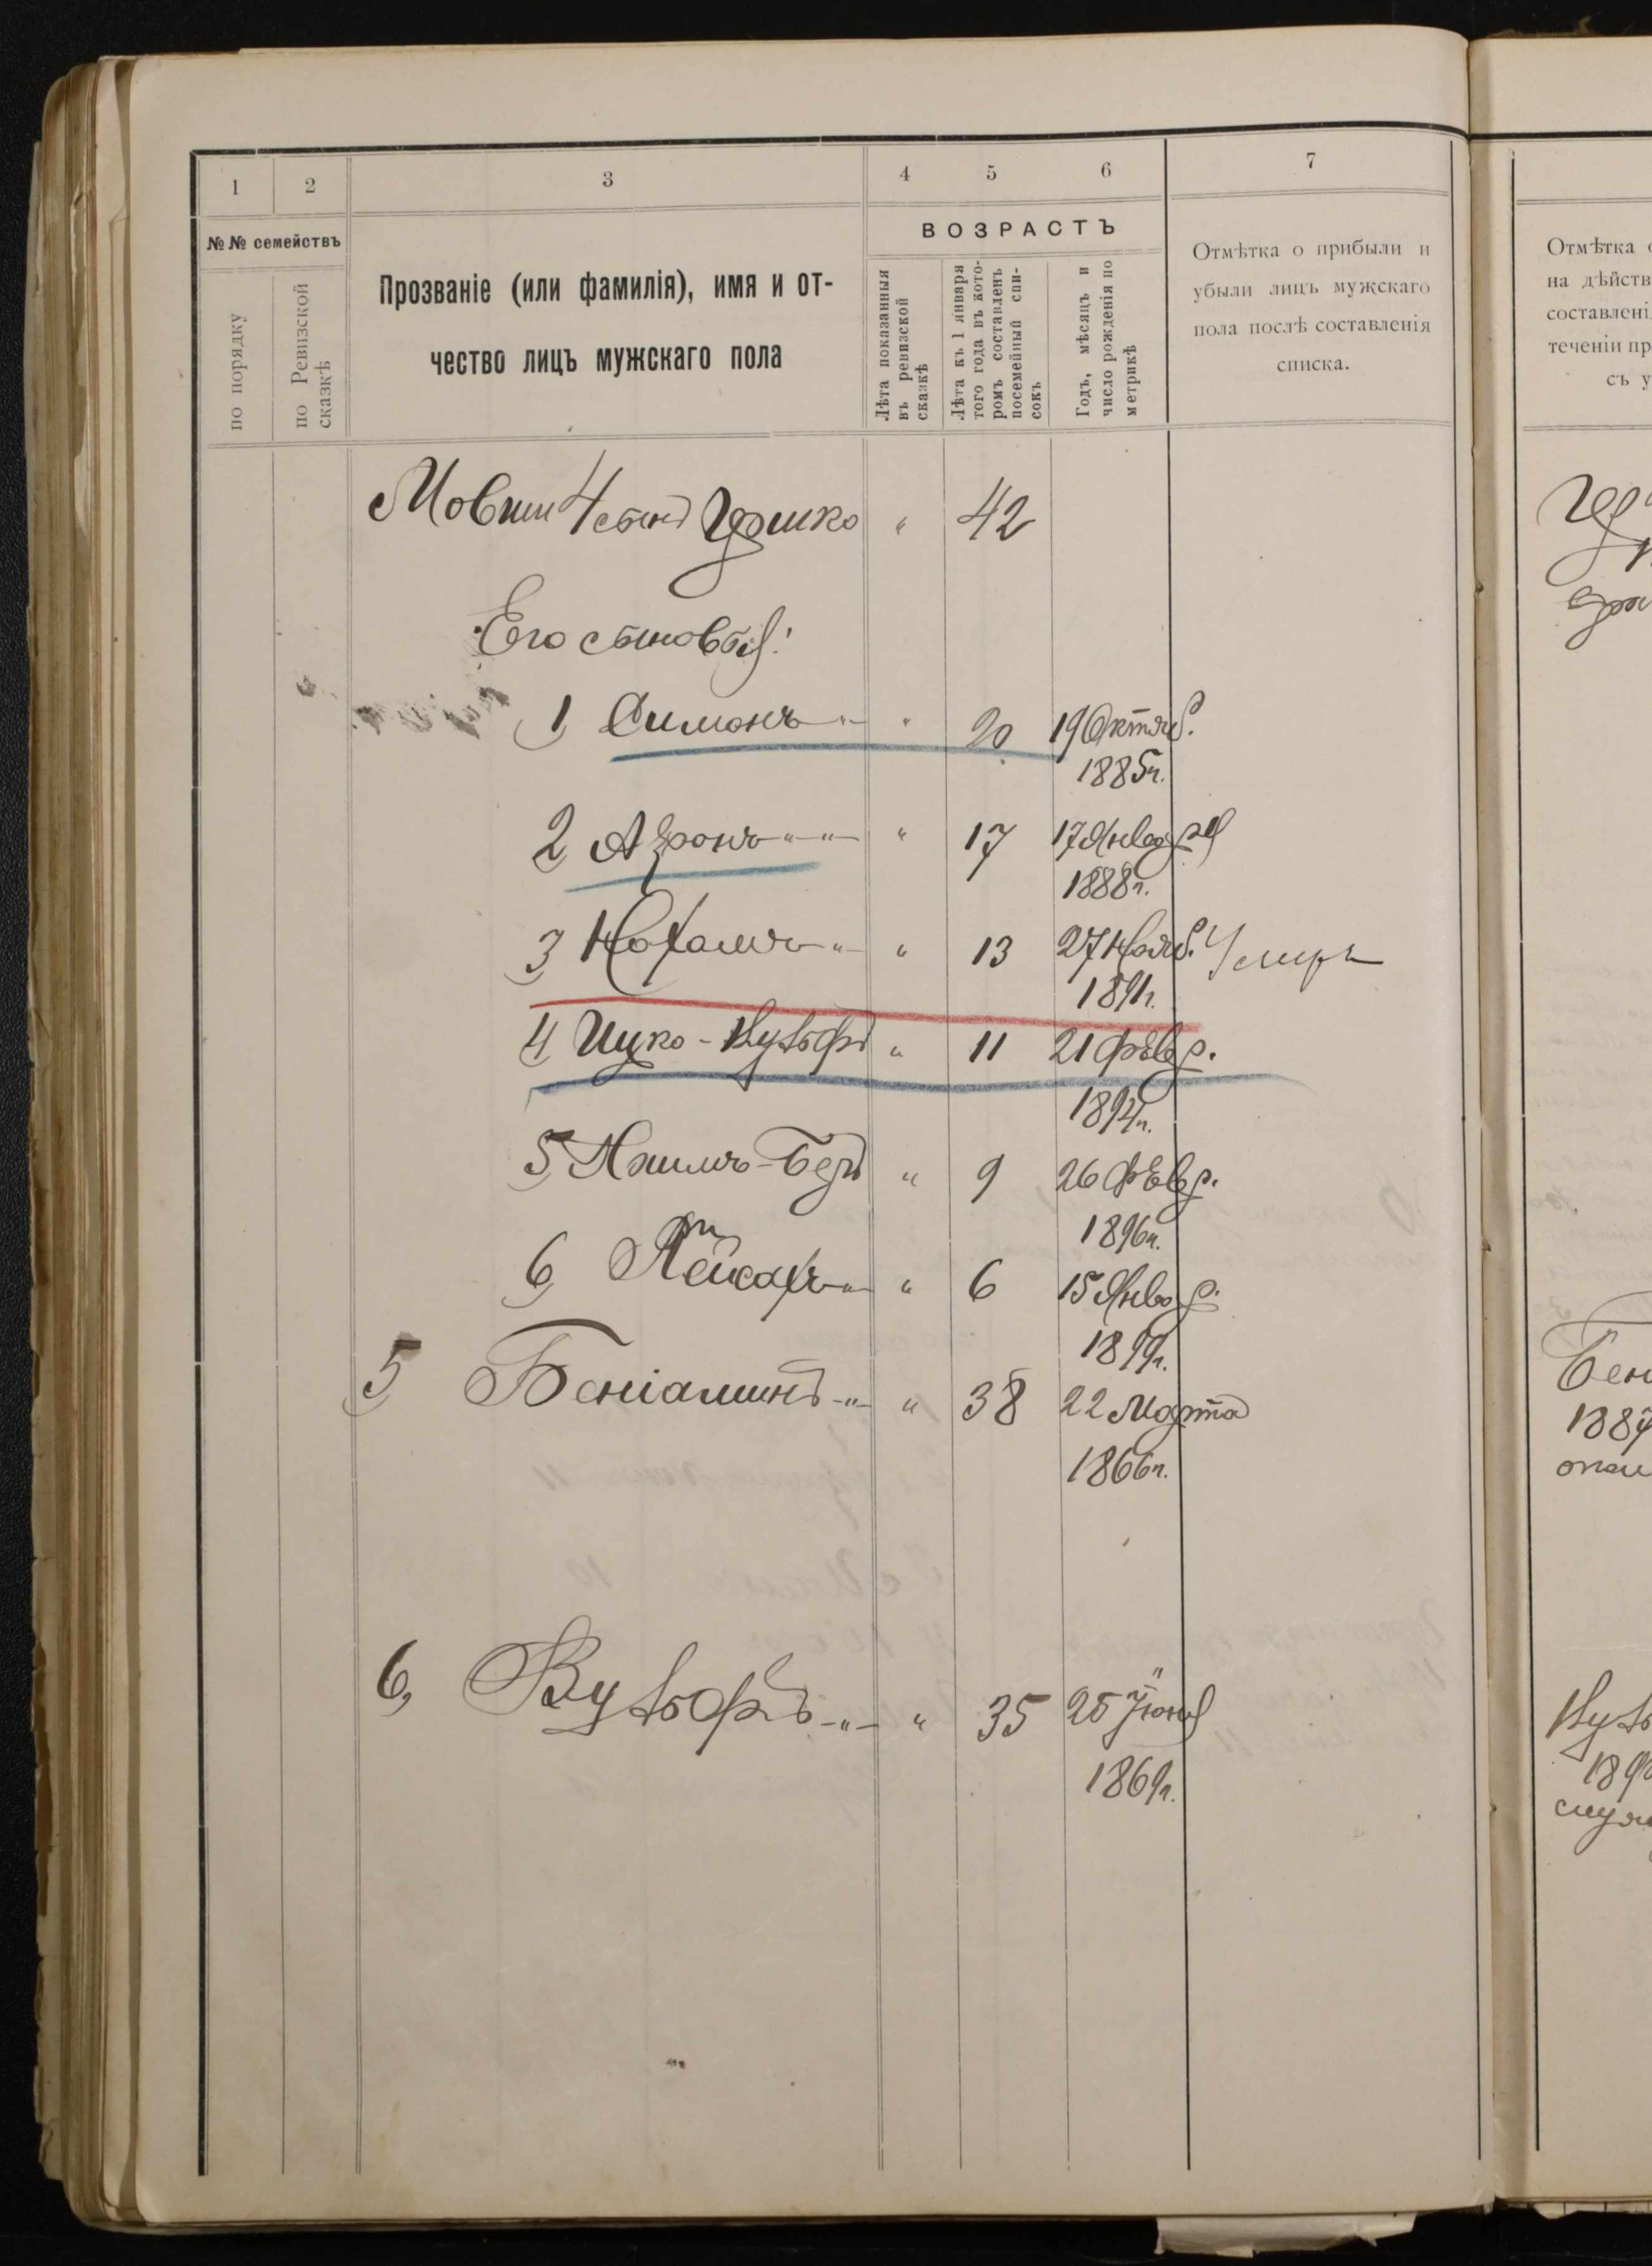 1 2 3 4 5 6 7
№№ семействъ
по порядку
по Ревизской сказкѣ
Прозваніе (или фамилія), имя и от-
чество лицъ мужскаго пола
ВОЗРАСТЪ
Лѣта показанныя
въ ревизской
сказкѣ
Лѣта къ 1 января
того года въ кото-
ромъ составленъ
посемейный спи-
сокъ
Годъ, мѣсяцъ и
число рожденія по
метрикѣ
Отмѣтка о прибыли и
убыли лицъ мужскаго
пола послѣ составленія
списка.
Отмѣтка
на дѣйств
составлені
теченіи пр
съ у
Мовши 4 сынъ Ицко " 42
Его сыновья:
1, Симонъ " " 20 19 Октяб.
1885 г.
2, Аронъ " " " 17 17 Января
1888 г.
3, Нохамъ " " 13 27 Нояб. Умеръ
1891 г.
4, Ицко-Вульфъ " 11 21 Февр.
1894 г.
5, Хаимъ-Беръ " 9 26 Февр.
1896 г.
6, Пейсахъ " " 6 15 Январ.
1899 г.
5, Беніаминъ " " 38 22 Марта
1866 г.
6, Вульфъ " " 35 25 Іюня
1869 г.
Бен
188
Вуль
189
служ